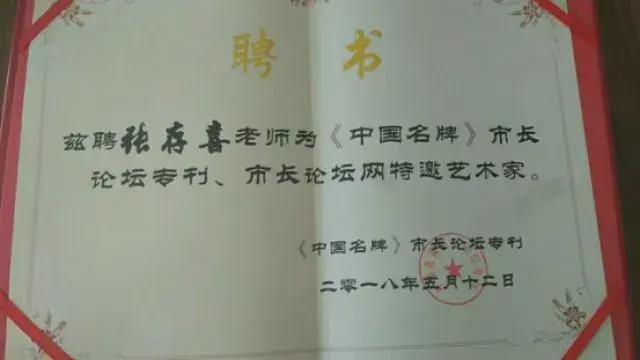 聘书
兹聘张存喜老师为《中国名牌》市长
论坛专刊、市长论坛网特邀艺术家。
《中国名牌》市长论坛专刊
二零一八年五月十二日